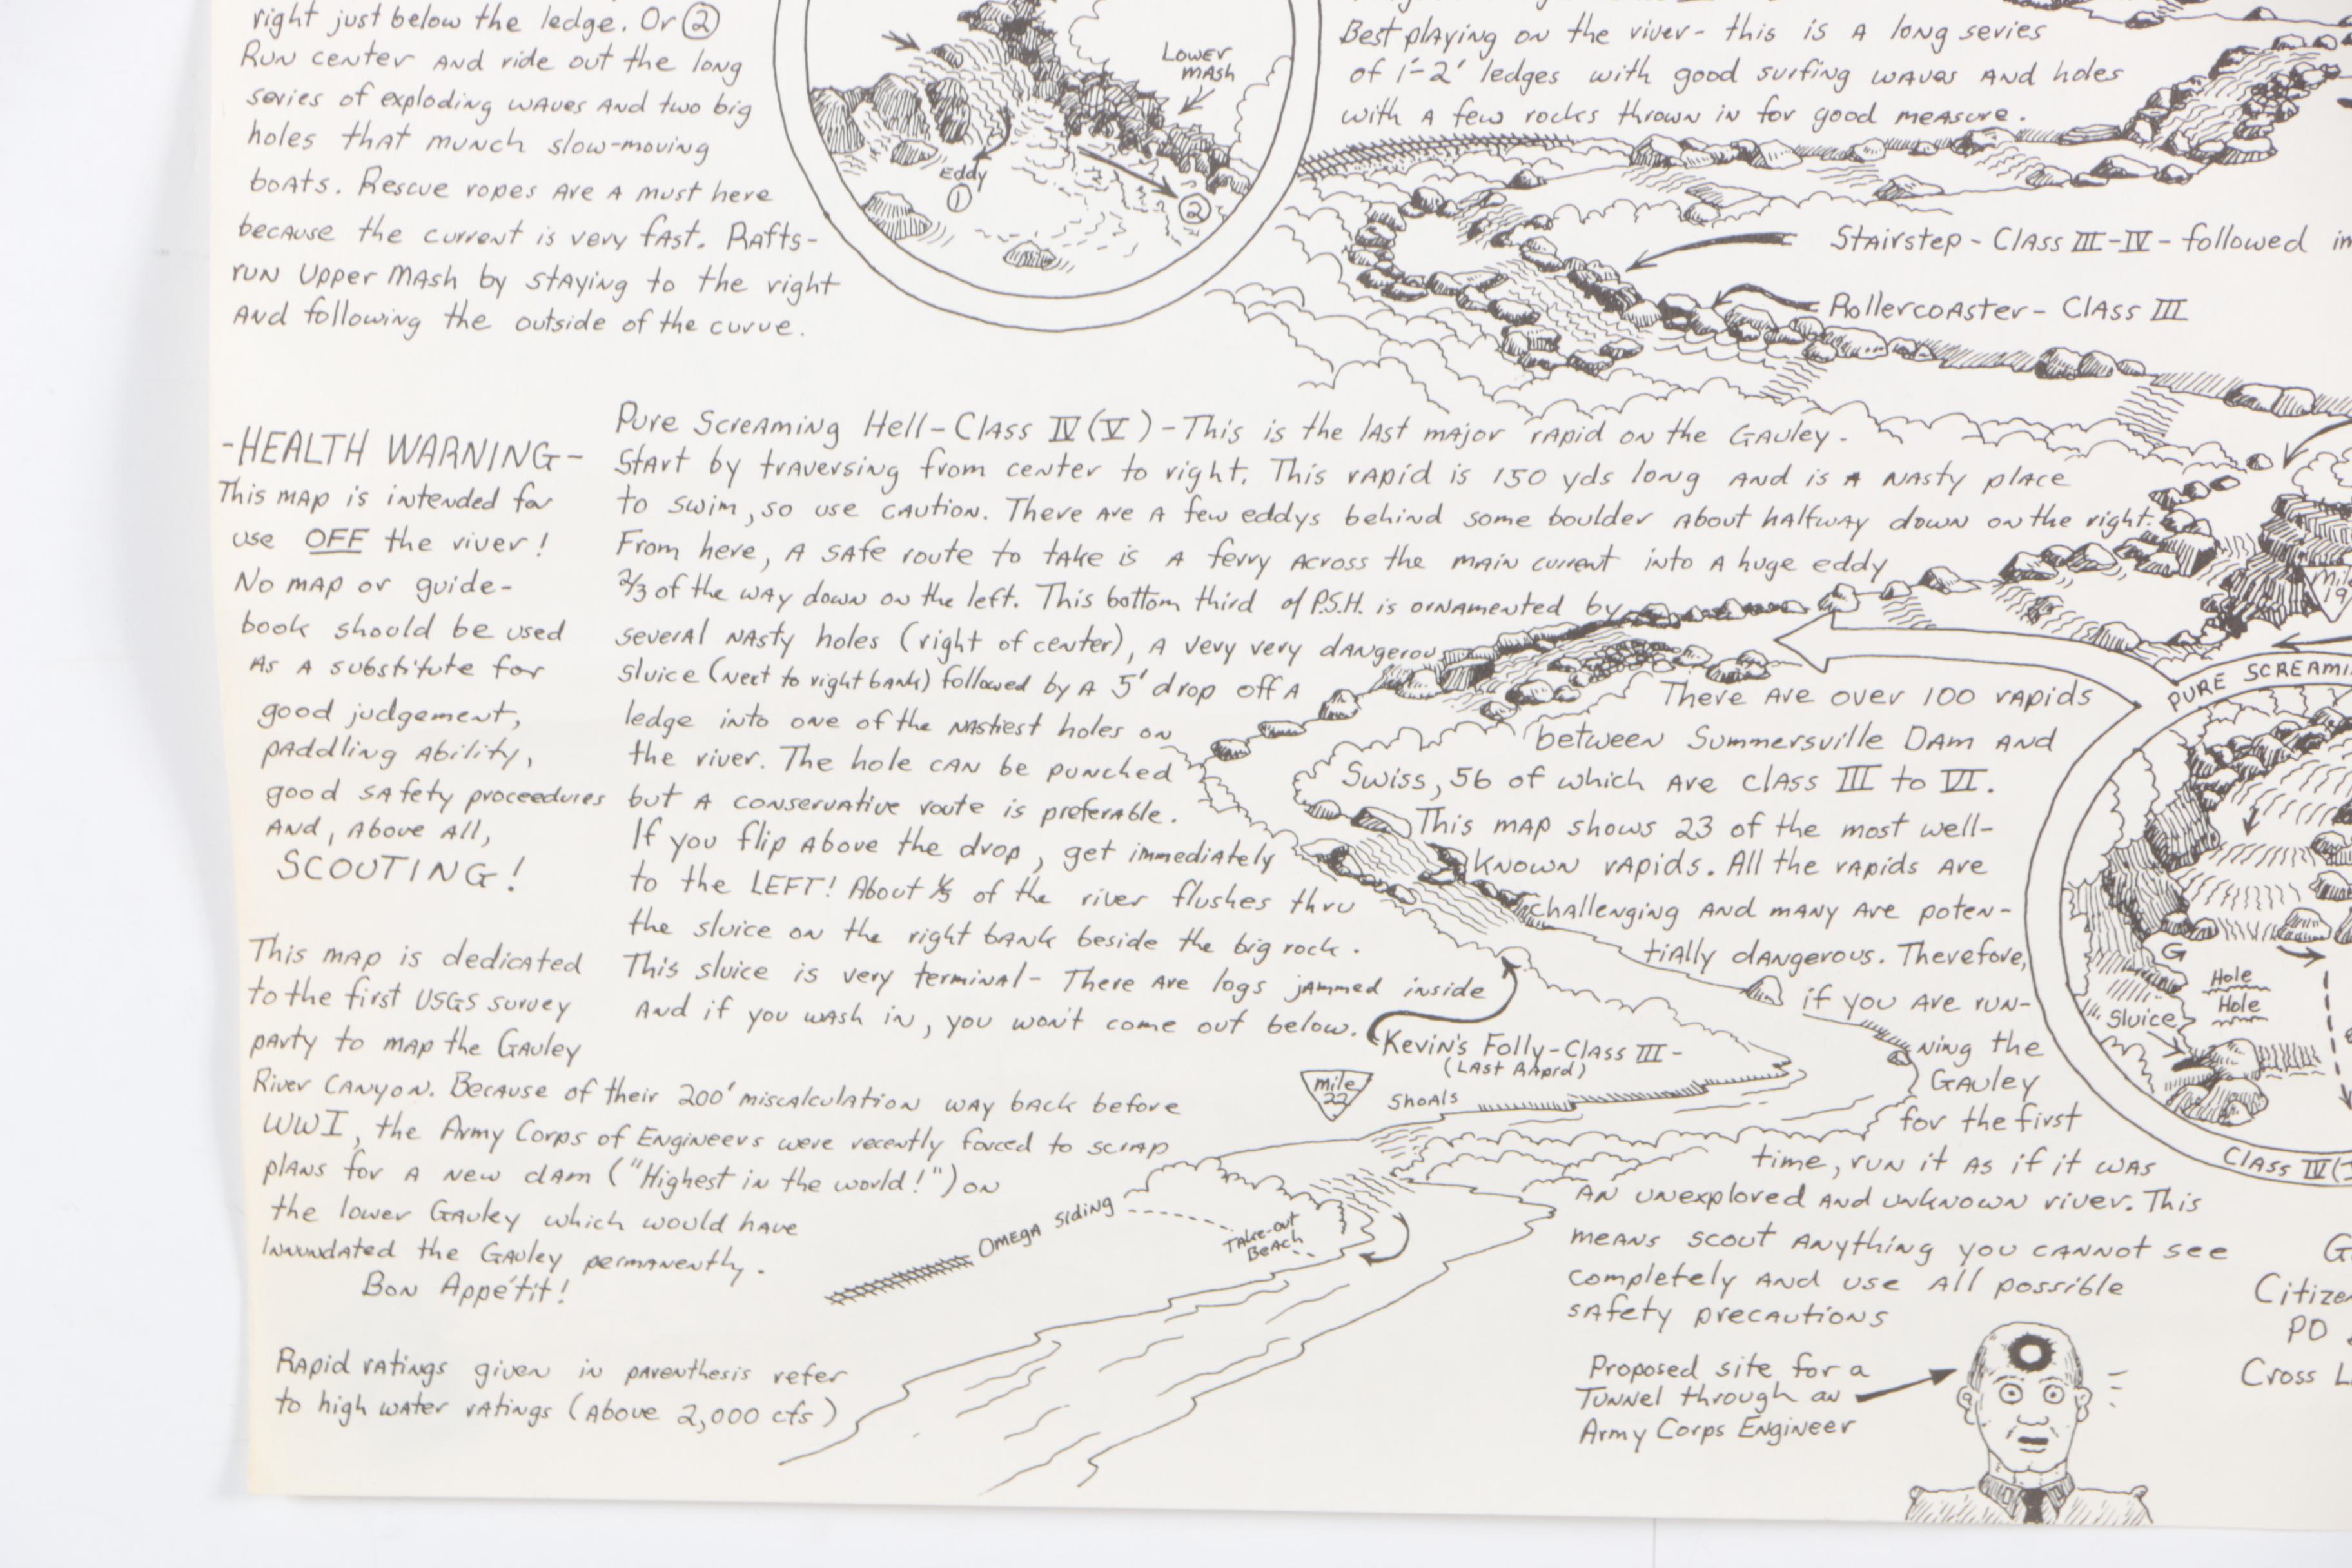 right just below the ledge. Or ②
Run center and ride out the long
series of exploding waves and two big
holes that munch slow-moving
boats. Rescue ropes are a must here
because the current is very fast. Rafts-
run Upper Mash by staying to the right
and following the outside of the curve.
Lower
Mash
Eddy
①
②
Best playing on the river- this is a long series
of 1'-2' ledges with good surfing waves and holes
with a few rocks thrown in for good measure.
Stairstep - Class III-IV - followed
Rollercoaster - Class III
-HEALTH WARNING-
This map is intended for
use OFF the river!
No map or guide-
book should be used
as a substitute for
good judgement,
paddling ability,
good safety proceedures
and, above all,
SCOUTING!
Pure Screaming Hell - Class IV (V) - This is the last major rapid on the Gauley.
Start by traversing from center to right. This rapid is 150 yds long and is a nasty place
to swim, so use caution. There are a few eddys behind some boulder about halfway down on the right.
From here, a safe route to take is a ferry across the main current into a huge eddy
2/3 of the way down on the left. This bottom third of P.S.H. is ornamented by
several nasty holes (right of center), a very very dangerous
sluice (next to right bank) followed by a 5' drop off a
ledge into one of the nastiest holes on
the river. The hole can be punched
but a conservative route is preferable.
If you flip above the drop, get immediately
to the LEFT! About 1/3 of the river flushes thru
the sluice on the right bank beside the big rock.
This sluice is very terminal - There are logs jammed inside
and if you wash in, you won't come out below.
This map is dedicated
to the first USGS survey
party to map the Gauley
River Canyon. Because of their 200' miscalculation way back before
WWI, the Army Corps of Engineers were recently forced to scrap
plans for a new dam ("Highest in the world!") on
the lower Gauley which would have
innundated the Gauley permanently.
Bon Appétit!
Rapid ratings given in parenthesis refer
to high water ratings (above 2,000 cfs)
Kevin's Folly - Class III -
(Last Rapid)
mile
22
Shoals
Omega Siding
Take-out
Beach
There are over 100 rapids
between Summersville Dam and
Swiss, 56 of which are class III to VI.
This map shows 23 of the most well-
known rapids. All the rapids are
challenging and many are poten-
tially dangerous. Therefore,
if you are run-
ning the
Gauley
for the first
time, run it as if it was
an unexplored and unknown river. This
means scout anything you cannot see
completely and use all possible
safety precautions
Proposed site for a
Tunnel through an
Army Corps Engineer
19
PURE SCREAMI
G
Hole
Hole
Sluice
CLASS IV
G
Citize
PO
Cross L